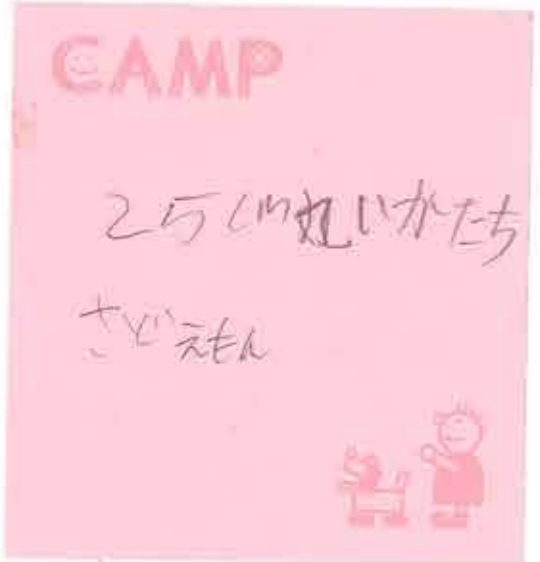 CAMP
25cm丸いかたち
さどえもん